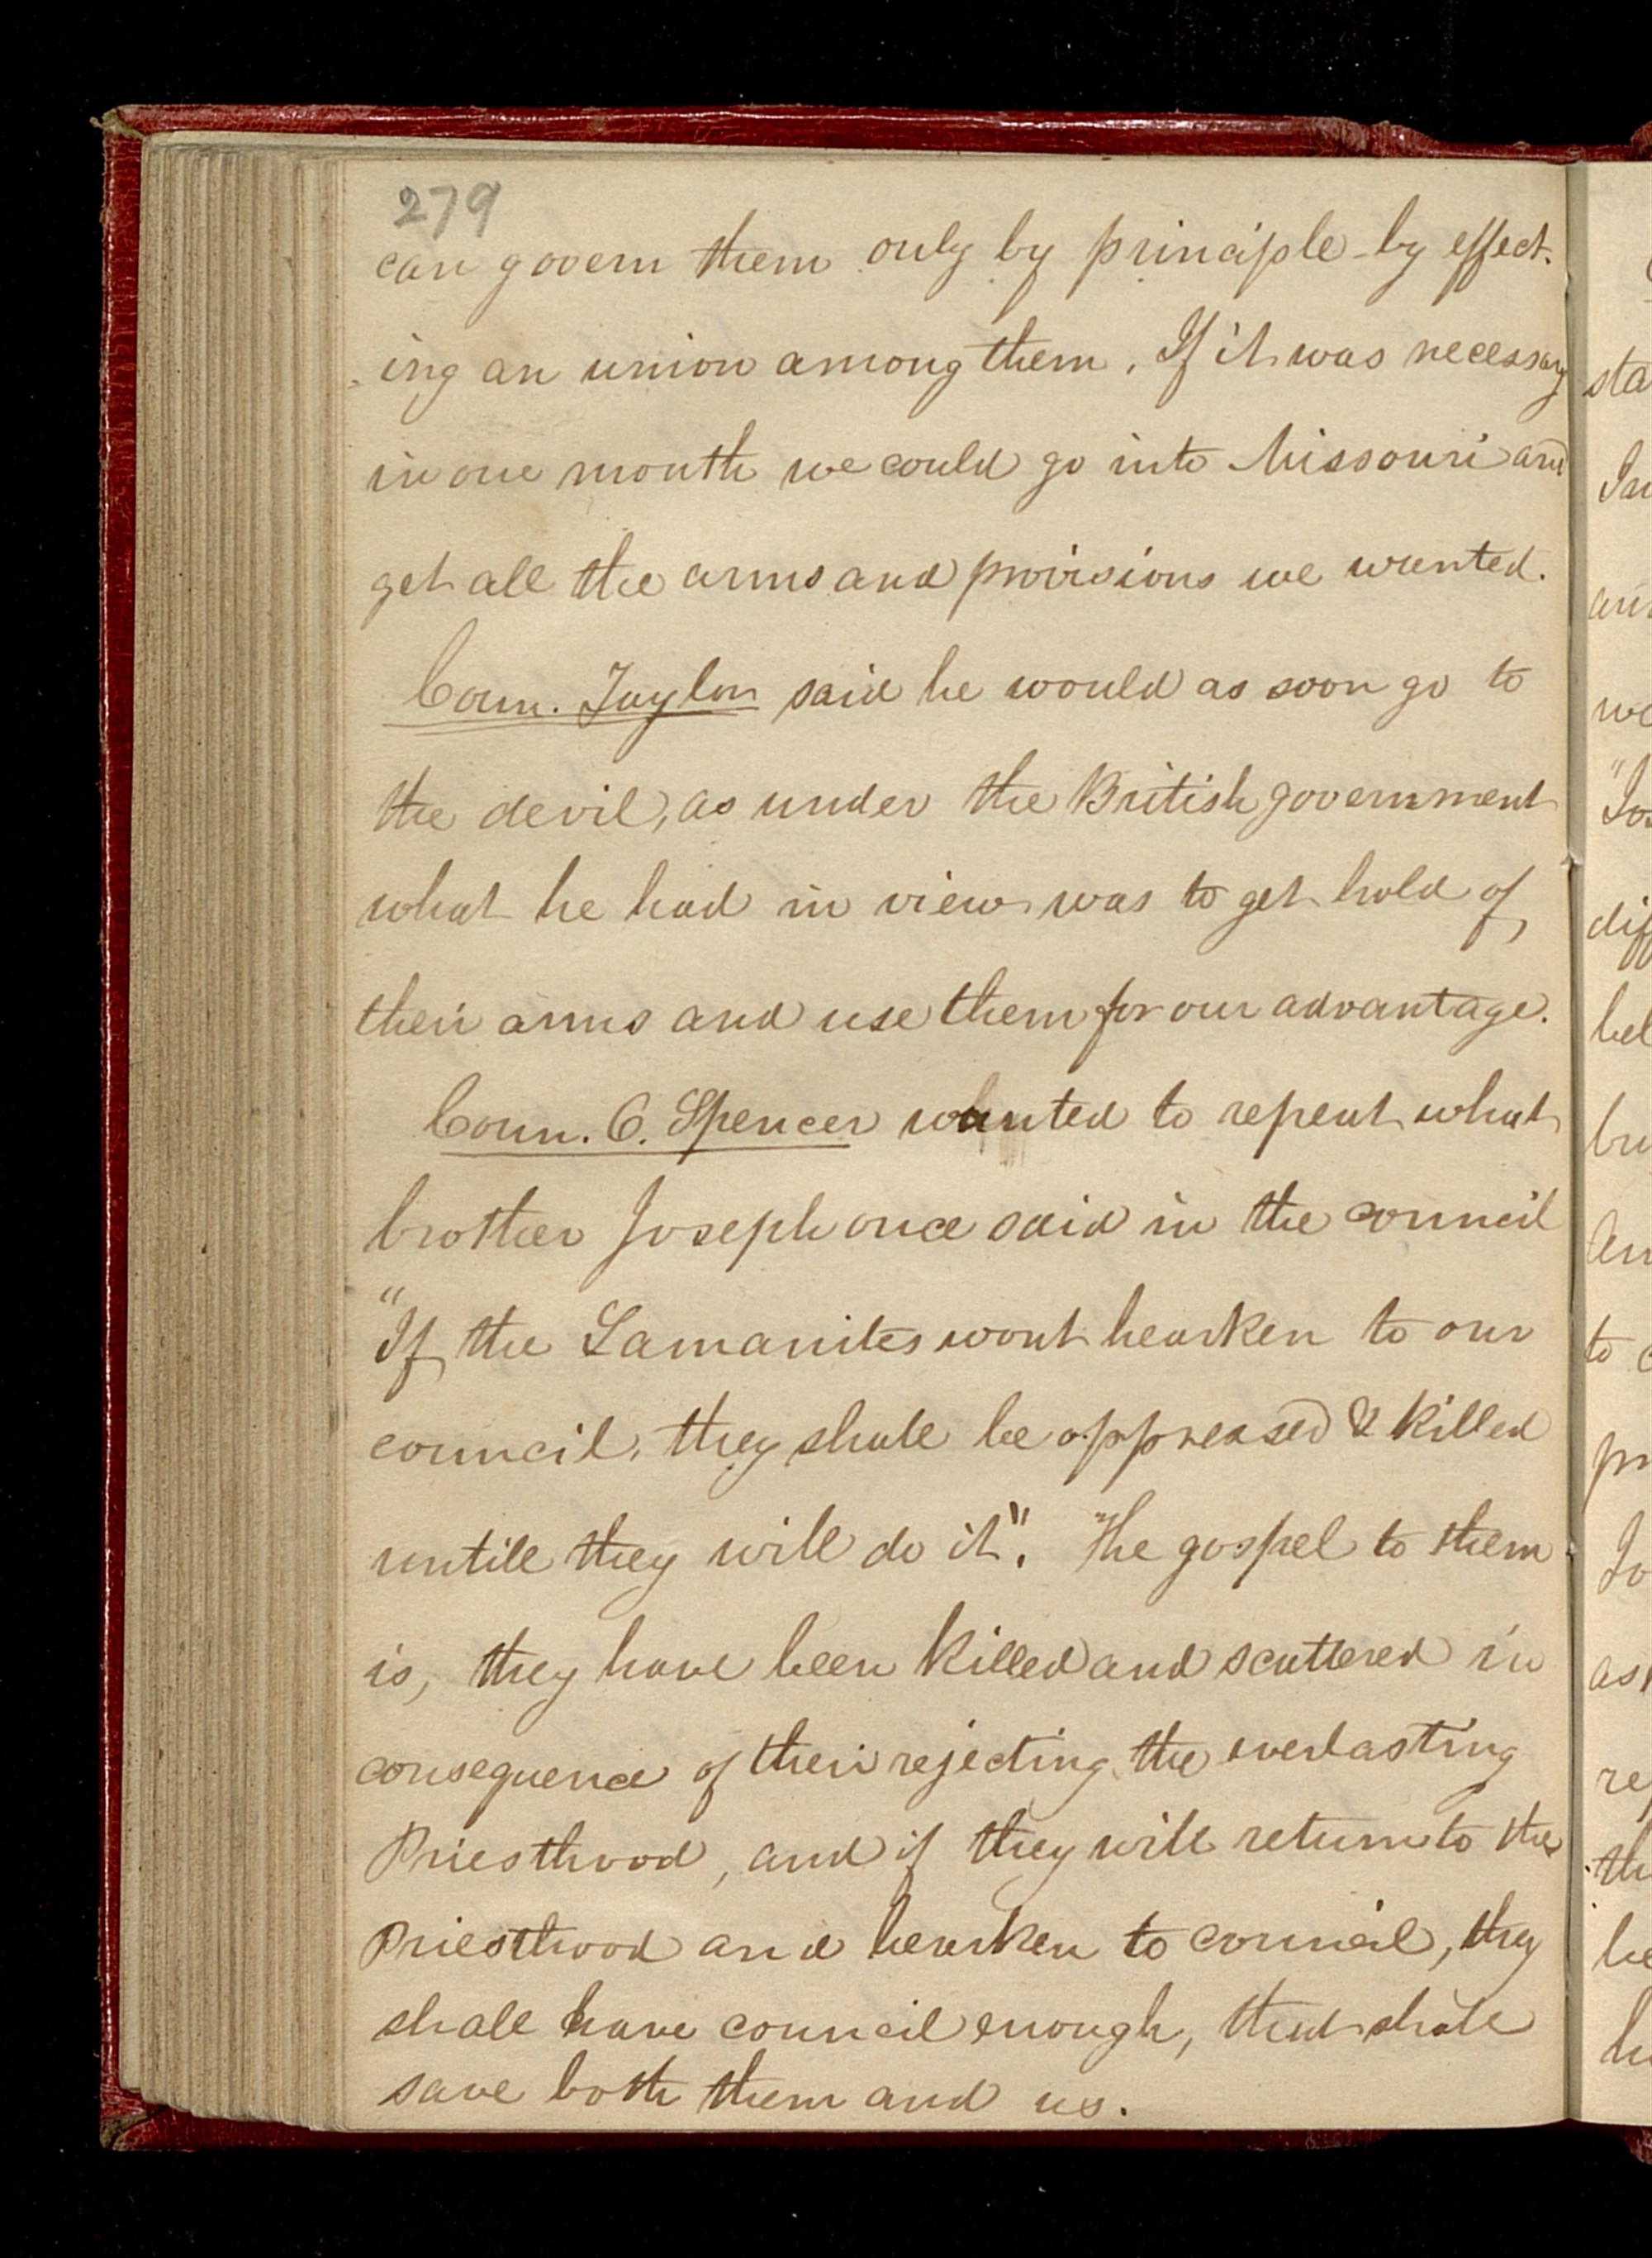 279
can govern them only by principle - by effect-
ing an union among them. If it was necessary
in one month we could go into Missouri and
get all the arms and provisions we wanted.
Coun. Taylor said he would as soon go to
the devil, as under the British government
what he had in view was to get hold of
their arms and use them for our advantage.
Coun. O. Spencer wanted to repeat what
brother Joseph once said in the council
"If the Lamanites wont hearken to our
council, they shall be oppressed & killed
untill they will do it". The gospel to them
is, they have been killed and scattered in
consequence of their rejecting the everlasting
Priesthood, and if they will return to the
Priesthood and hearken to council, they
shall have council enough, that shall
save both them and us.